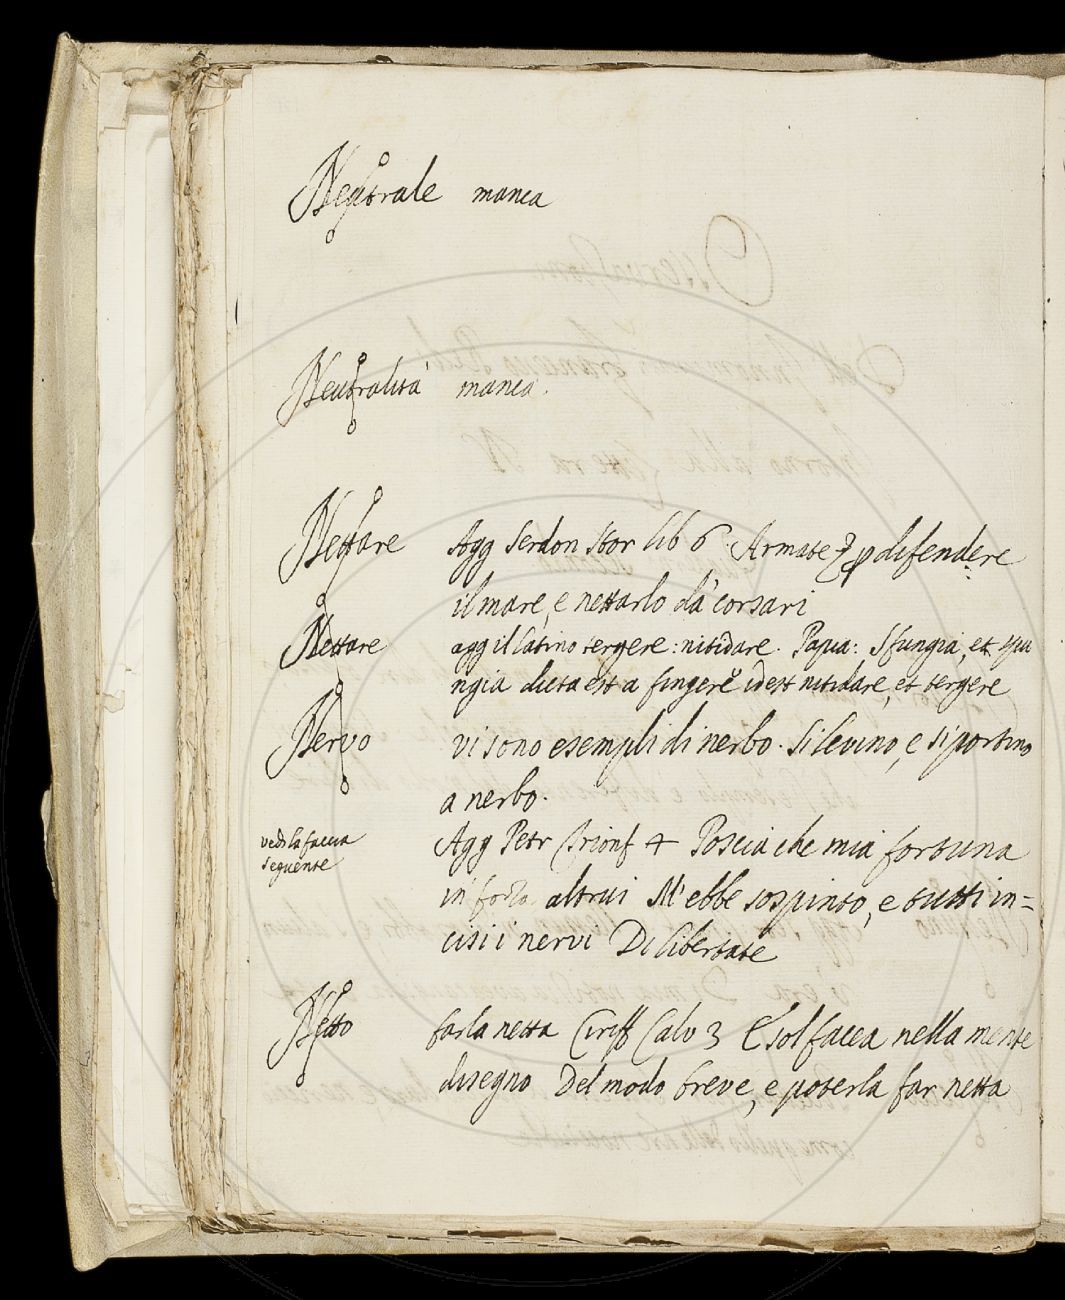 Neutrale manca
Neutralità manca.
Nettare Agg Serdon Stor lib 6 Armate p difendere
il mare, e nettarlo da' corsari
Nettare agg il latino tergere: nitidare. Papia: Sfungia, et spu
ngia dicta est a fingere idest nitidare, et tergere
Nervo vi sono esempli di nerbo. Si levino, e si portino
a nerbo.
vedi la faccia
seguente
Agg Petr Trionf 4 Poscia che mia fortuna
in forza altrui M'ebbe sospinto, e tutti in=
cisi i nervi Di libertate
Netto farla netta Ciriff Calv 3 E sol facea nella mente
disegno Del modo breve, e poterla far netta